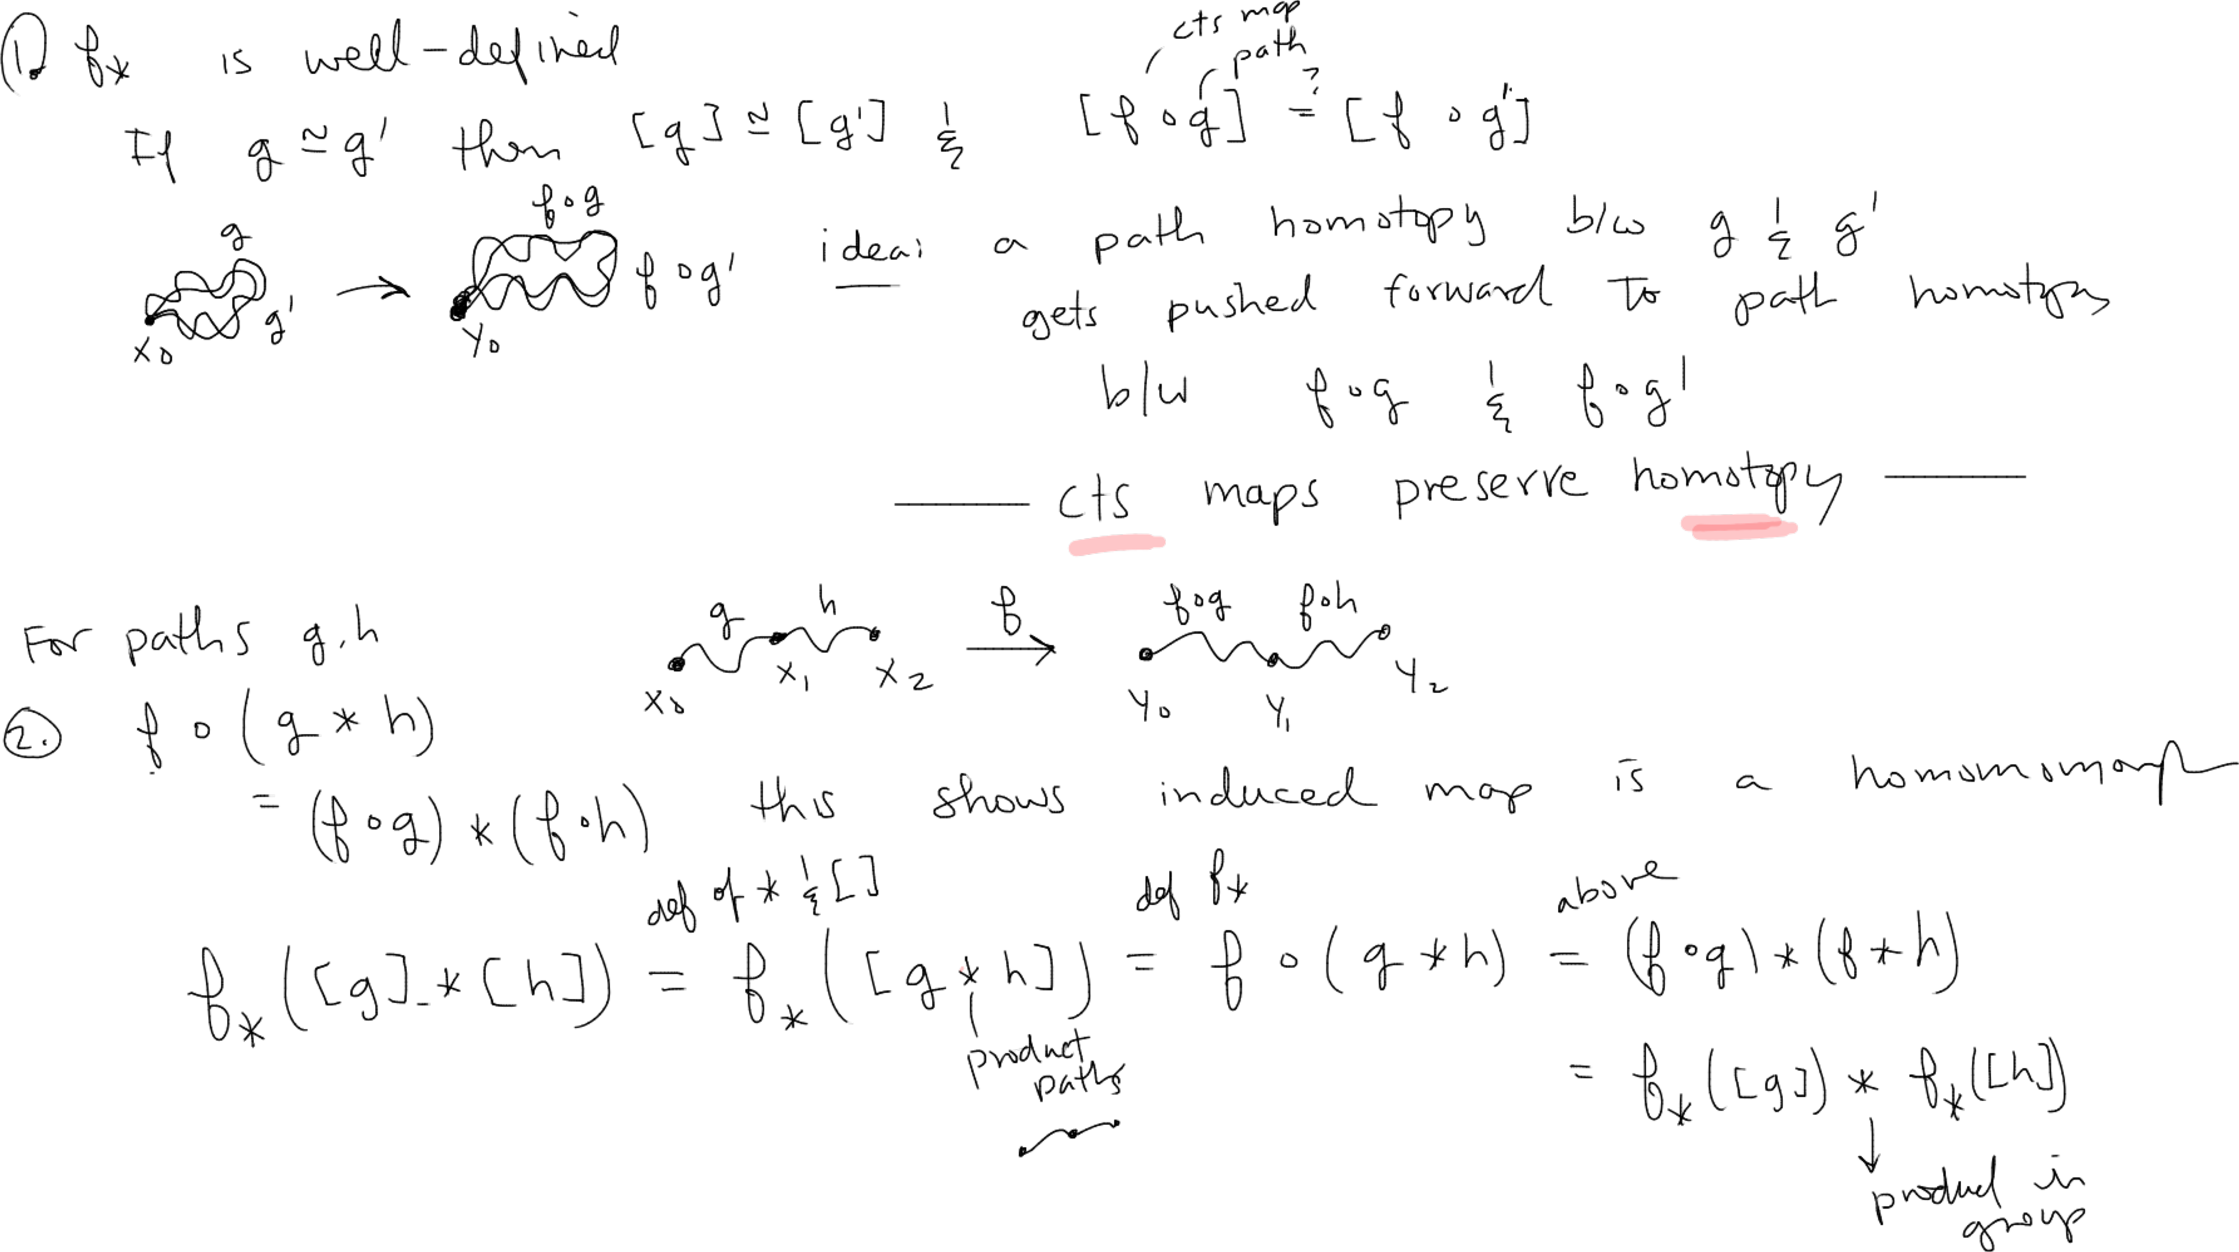 1. f_* is well-defined
cts map
path
If g ≃ g' then [g] ≃ [g'] & [f ∘ g] =? [f ∘ g']
g
g'
x₀
→
f∘g
f∘g'
y₀
idea: a path homotopy b/w g & g'
gets pushed forward to path homotopy
b/w f∘g & f∘g'
—— cts maps preserve homotopy ——
For paths g, h
g h
x₀ x₁ x₂
f
→
f∘g f∘h
y₀ y₁ y₂
2. f ∘ (g * h)
= (f∘g) * (f∘h) this shows induced map is a
def of * & [ ] def f_* above
f_*([g] * [h]) = f_*([g * h]) = f ∘ (g * h) = (f∘g) * (f * h)
product
paths
= f_*([g]) * f_*([h])
↓
product in
group